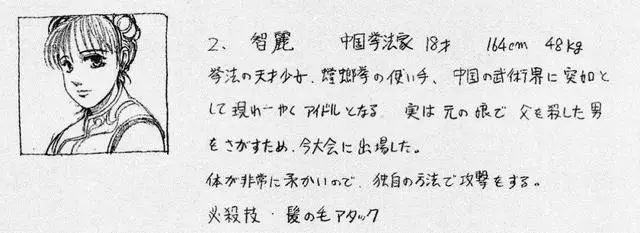 2、 智麗 中国拳法家 18才 164cm 48kg
拳法の天才少女、螳螂拳の使い手、中国の武術界に突如と
して現れ一やくアイドルとなる。 実は元の娘で 父を殺した男
をさがすため、今大会に出場した。
体が非常に柔かいので、独自の方法で攻撃をする。
必殺技・髪の毛アタック